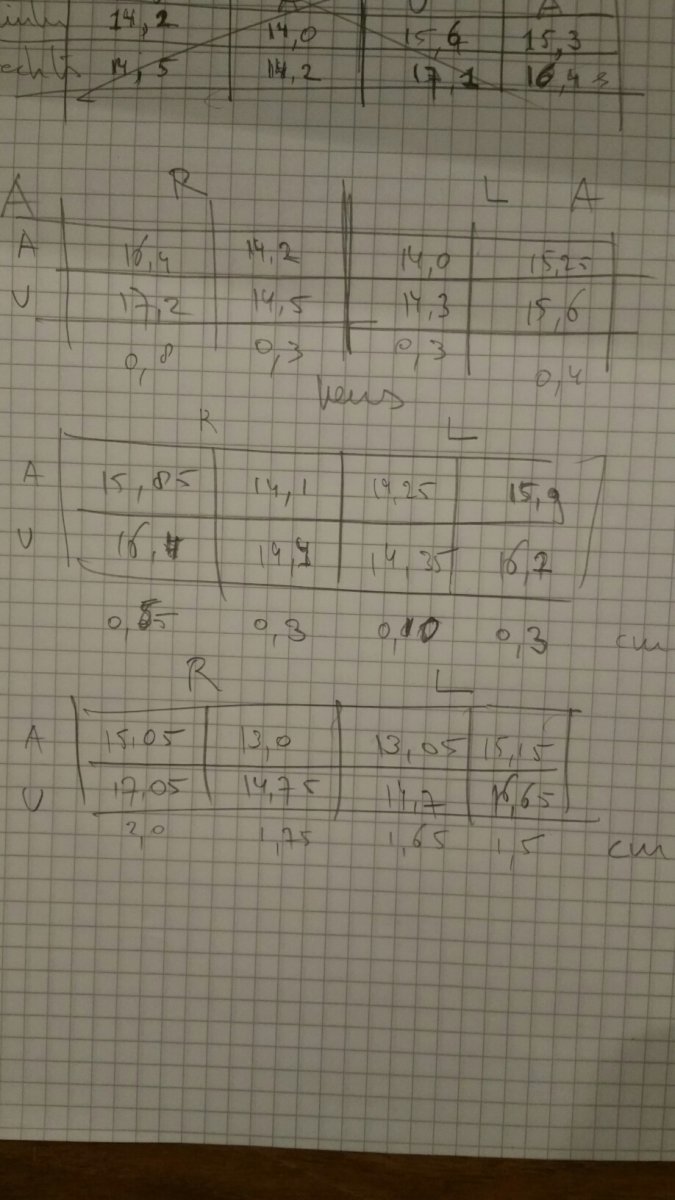 A U A
14,2 14,0 15,6 15,3
14,5 14,2 17,1 16,4
A R L A
A 16,4 14,2 14,0 15,25
U 17,2 14,5 14,3 15,6
0,8 0,3 0,3 0,4
R L
A 15,85 14,1 14,25 15,9
U 16,4 14,4 14,35 16,2
0,55 0,3 0,10 0,3 cm
R L
A 15,05 13,0 13,05 15,15
U 17,05 14,75 14,7 16,65
2,0 1,75 1,65 1,5 cm